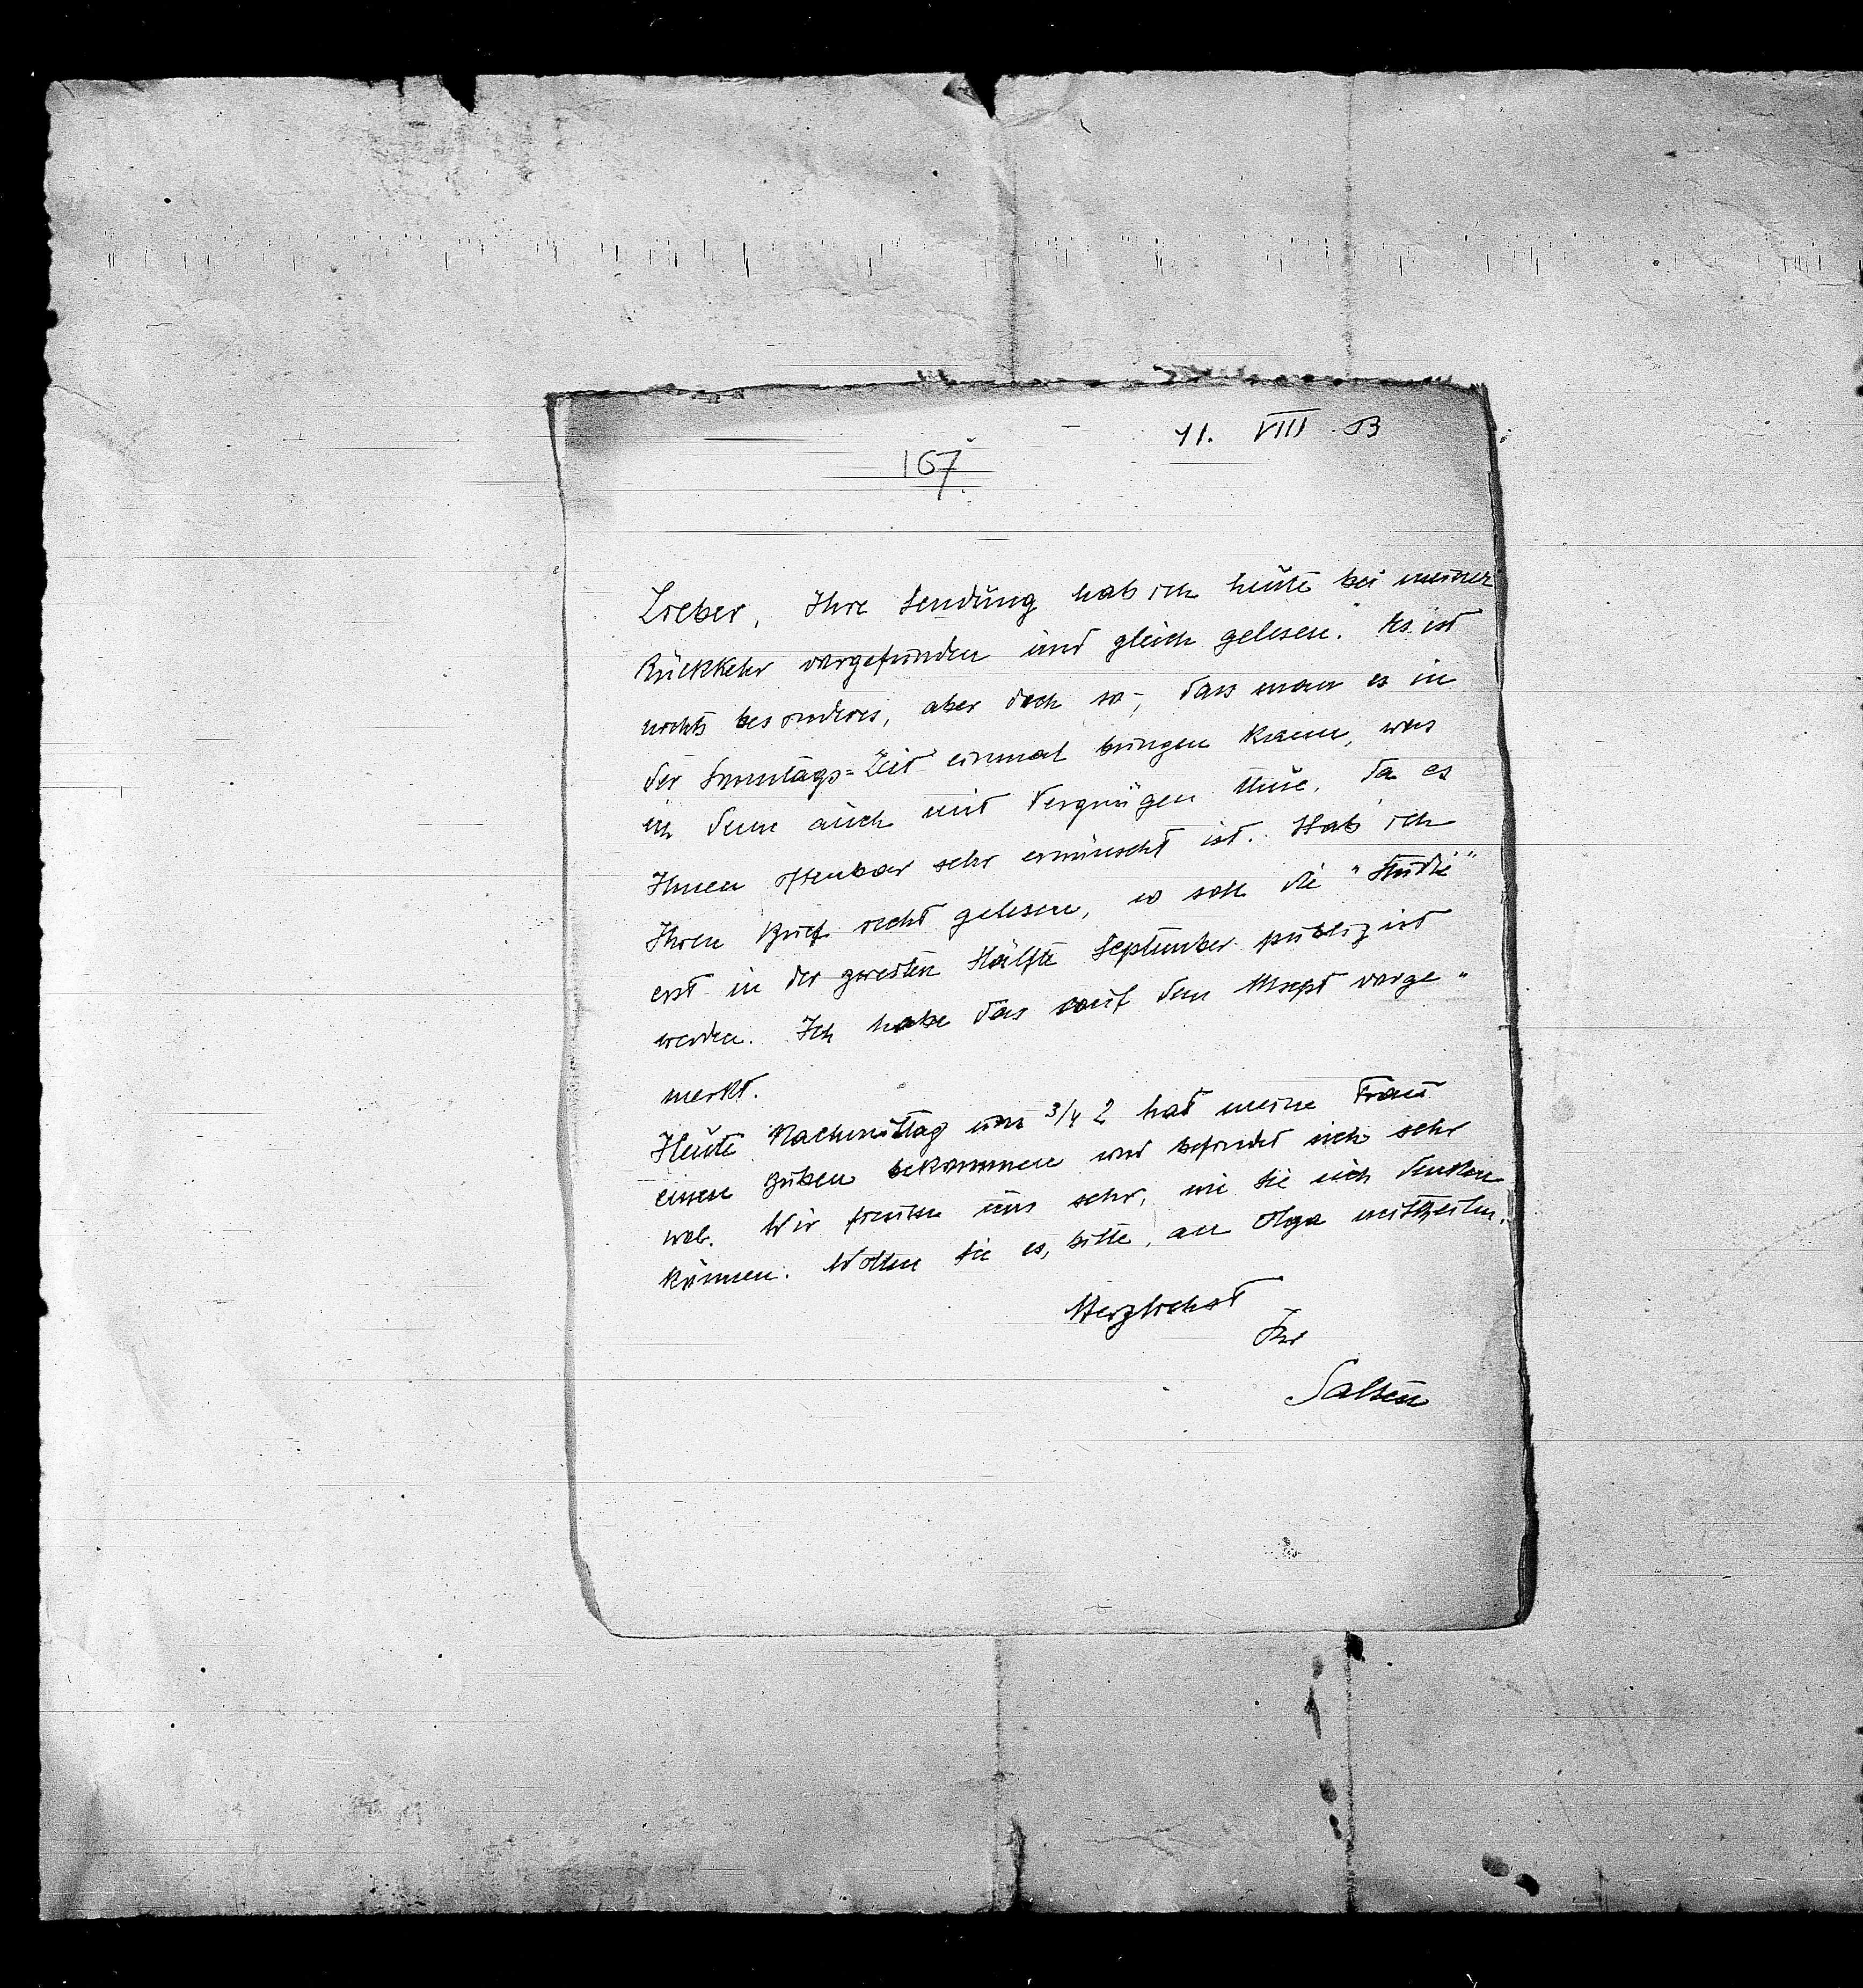 11. VIII 03
167.
Lieber, Ihre Sendung hab ich heute bei meiner
Rückkehr vorgefunden und gleich gelesen. Es ist
nichts besonderes, aber doch so, dass man es in
der Sonntags=Zeit einmal bringen kann, was
ich denn auch mit Vergnügen thue, da es
Ihnen offenbar sehr erwünscht ist. Hab ich
Ihren Brief recht gelesen, so soll die "Studie"
erst in der zweiten Hälfte September publizirt
werden. Ich habe das auf dem Mscpt vorge"
merkt.
Heute Nachmittag um 3/4 2 hat meine Frau
einen Buben bekommen und befindet sich sehr
wol. Wir freuen uns sehr, wie Sie sich denken
können. Wollen Sie es, bitte, an Olga mittheilen.
Herzlichst
Ihr
Salten